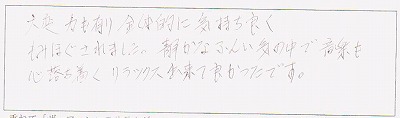 大変 力も有り 全体的に 気持ち良く
もみほぐされました。静かなふんい気の中で 音楽も
心落ち着く リラックス出来て良かったです。